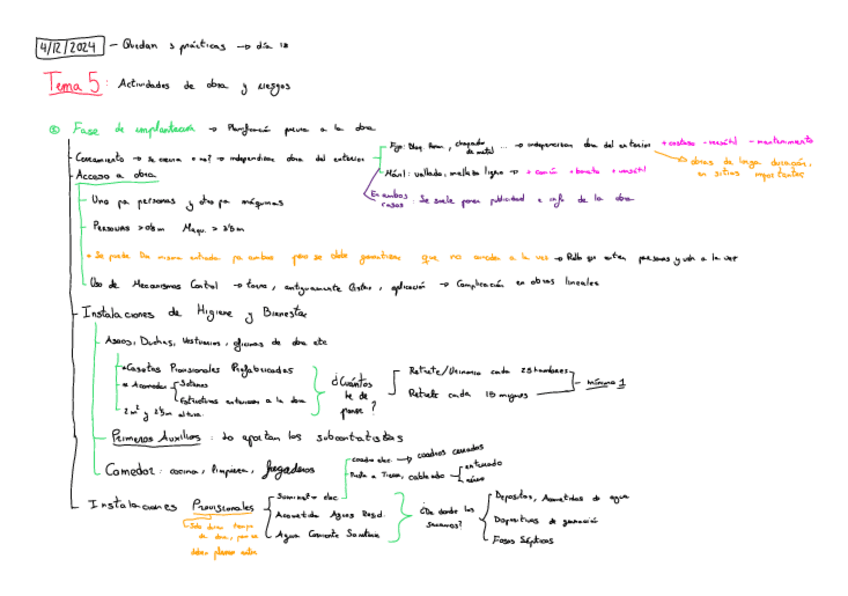 4/12/2024 - Quedan 3 prácticas → día 18
Tema 5: Actividades de obra y riesgos
Fase de implantación → Planificació previa a la obra
Cerramiento → se cierra o no? → independizar obra del exterior
Fijo: Bloq Horm, chapado de metal ... → independizan obra del exterior + costoso - versátil - mantenimiento
→ obras de larga duración, en sitios importantes
Móvil: vallado, malla ligera → + común + barato + versátil
En ambos casos: Se suele poner publicidad e info de la obra
Acceso a obra
Uno pa personas y otro pa máquinas
Personas > Maqu. >
* Se puede misma entrada pa ambos pero se debe garantizar que no accedan a la vez → que entren personas y veh a la vez
Uso de Mecanismos Control → torno, antiguamente, aplicación → Complicación en obras lineales
Instalaciones de Higiene y Bienestar
Aseos, Duchas, Vestuarios, oficinas de obra etc
* Casetas Provisionales Prefabricadas
* Acomodar
Sótanos
Estructuras anteriores a la obra
2 m² y altura
¿Cuántos he de poner?
Retrete/Urinario cada 25 hombres
Retrete cada 15 mujeres
mínimo 1
Primeros Auxilios: lo aportan los subcontratistas
Comedor: cocina, limpieza, fregaderos
Instalaciones Provisionales
Solo duran tiempo de obra, pero se deben planear antes
Suministro elec
cuadro elec. → cuadros cerrados
Puesta a Tierra, cableado
enterrado
aéreo
Acometida Aguas Resid.
Agua Corriente Sanitaria
¿De donde las sacamos?
Depositos, Acometidas de agua
Dispositivos de generació
Fosas Sépticas